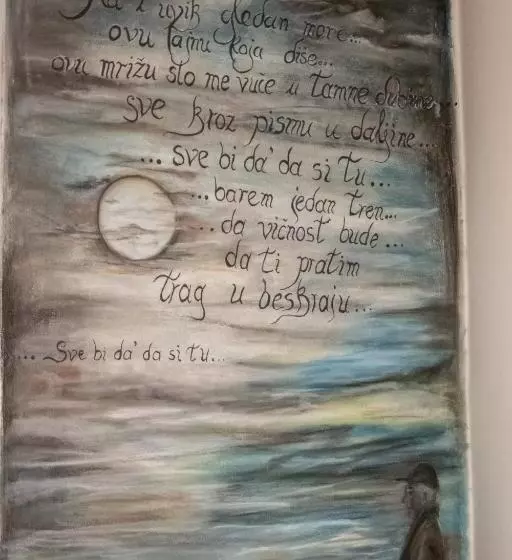 Ja i uvik gledan more...
ovu tajnu koja diše...
ovu mrižu što me vuče u tamne dubine...
sve kroz pismu u daljine...
... sve bi da' da si tu...
...barem jedan tren...
...da vičnost bude...
da ti pratim
trag u beskraju...
... Sve bi da' da si tu...